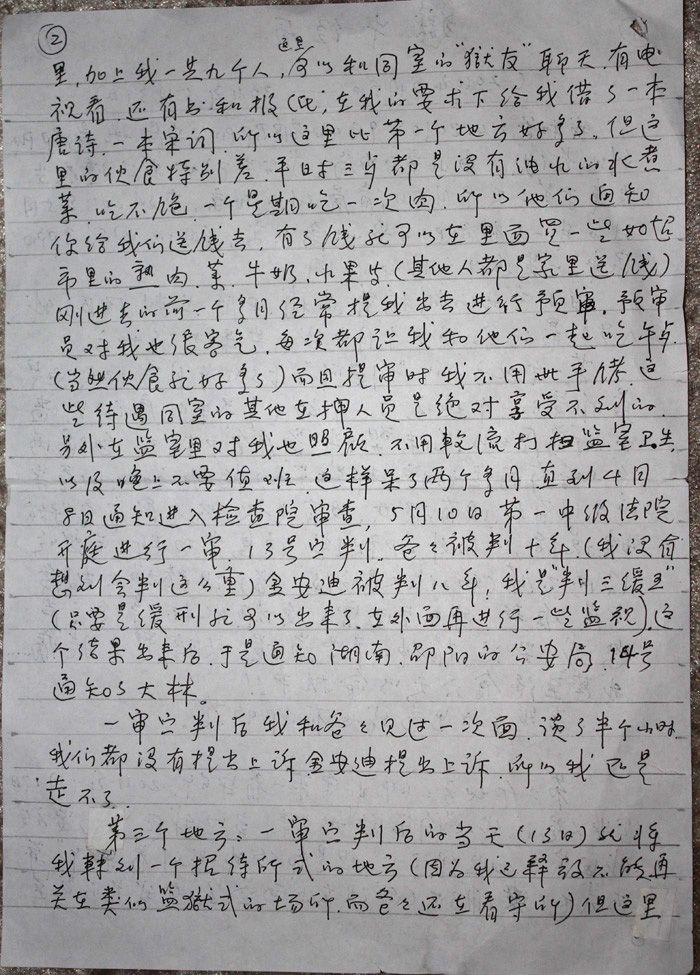 ②
里,加上我一共九个人,这里可以和同室的“獄友”聊天,有电
视看,还有书和报(些,在我的要求下给我借了一本
唐诗,一本宋词,所以这里比第一个地方好多了,但这
里的伙食特别差,平时三歺都是没有油水的水煮
菜,吃不饱,一个星期吃一次肉,所以他们通知
你给我们送钱去,有了钱就可以在里面买一些如超
市里的熟肉、菜、牛奶、水果等(其他人都是家里送钱)
刚进去的前一个多月经常提我出去进行预审,预审
员对我也很客气,每次都让我和他们一起吃午歺
(当然伙食就好多了)而且提审时我不用带手铐,这
些待遇同室的其他在押人员是绝对享受不到的,
另外在监室里对我也照顾,不用轮流打扫监室卫生
以及晚上不要值班,这样呆了两个多月直到4月
8日通知进入检查院审查,5月10日第一中级法院
开庭进行一审,13号宣判,爸々被判十年,(我没有
想到会判这么重)金安迪被判八年,我是“判三缓五”
(只要是缓刑就可以出来了,在外面再进行一些监视),这
个结果出来后,于是通知湖南、邵阳的公安局,14号
通知了大林。
一审宣判后我和爸々见过一次面,谈了半个小时
我们都没有提出上诉,金安迪提出上诉,所以我还是
走不了。
第三个地方:一审宣判后的当天(13日)就将
我转到一个招待所式的地方(因为我已释放不能再
关在类似监獄式的场所,而爸々还在看守所)但这里